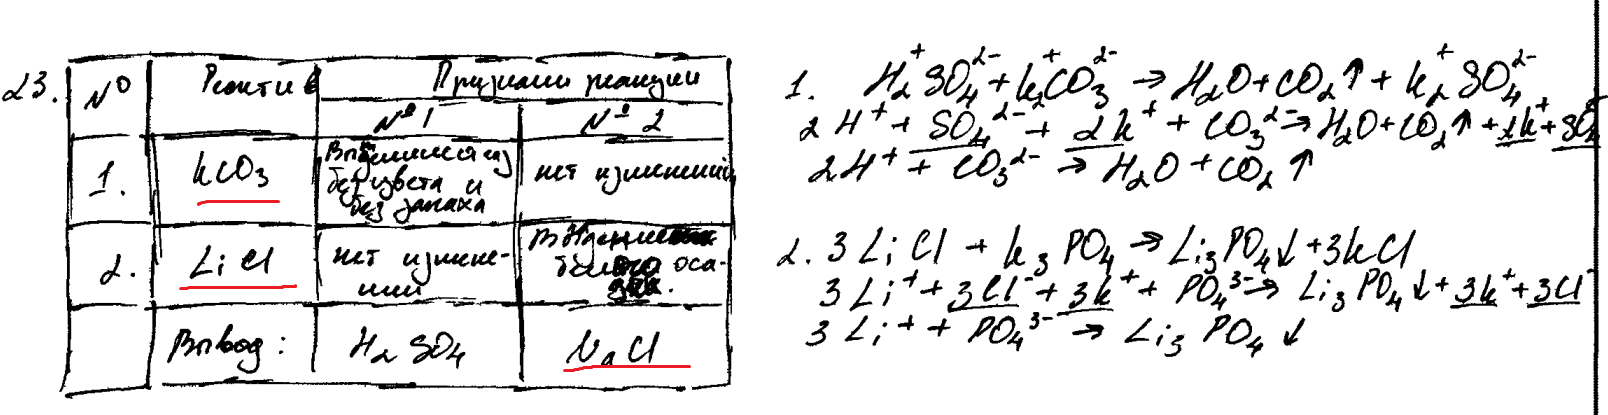 23.
№ Реактив Признаки реакции
№ 1 № 2
1. KCO₃ Выделился газ без цвета и без запаха нет изменений
2. LiCl нет изменений белого осадка.
Вывод: H₂SO₄ NaCl
1. H₂⁺SO₄²⁻ + K₂⁺CO₃²⁻ → H₂O + CO₂↑ + K₂⁺SO₄²⁻
2H⁺ + SO₄²⁻ + 2K⁺ + CO₃²⁻ → H₂O + CO₂↑ + 2K⁺ + SO₄
2H⁺ + CO₃²⁻ → H₂O + CO₂↑
2. 3LiCl + K₃PO₄ → Li₃PO₄↓ + 3KCl
3Li⁺ + 3Cl⁻ + 3K⁺ + PO₄³⁻ → Li₃PO₄↓ + 3K⁺ + 3Cl⁻
3Li⁺ + PO₄³⁻ → Li₃PO₄↓